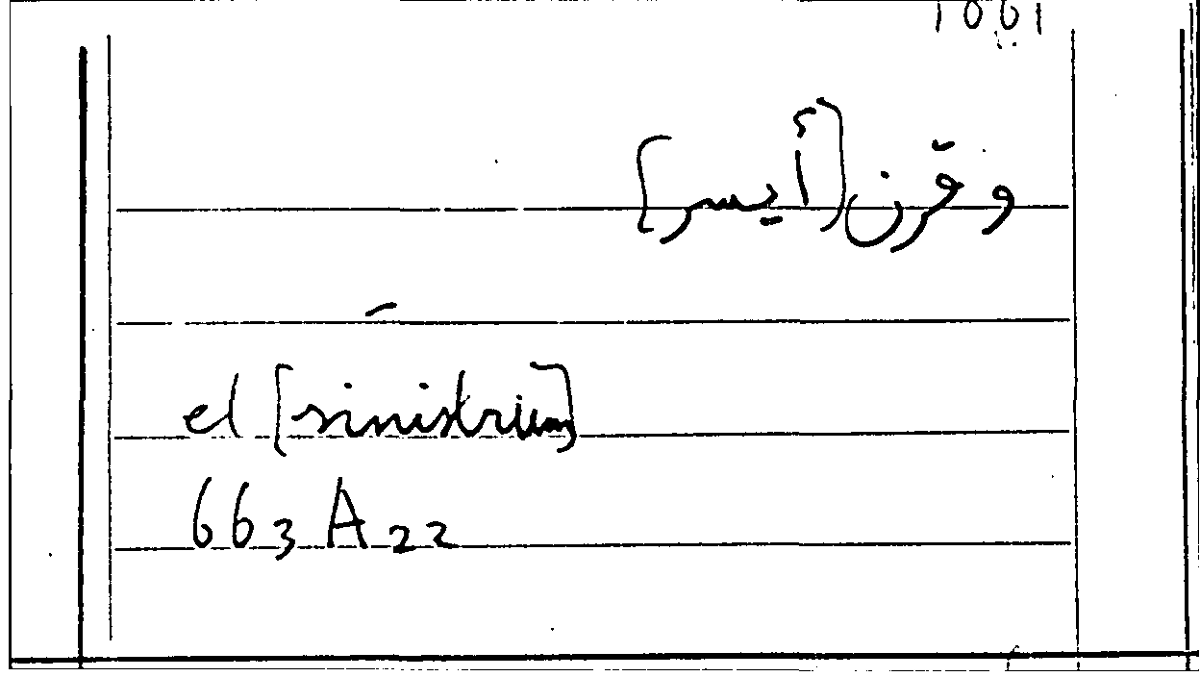 1061
وقرن [أيسر]
el [sinistrum]
663 A 22